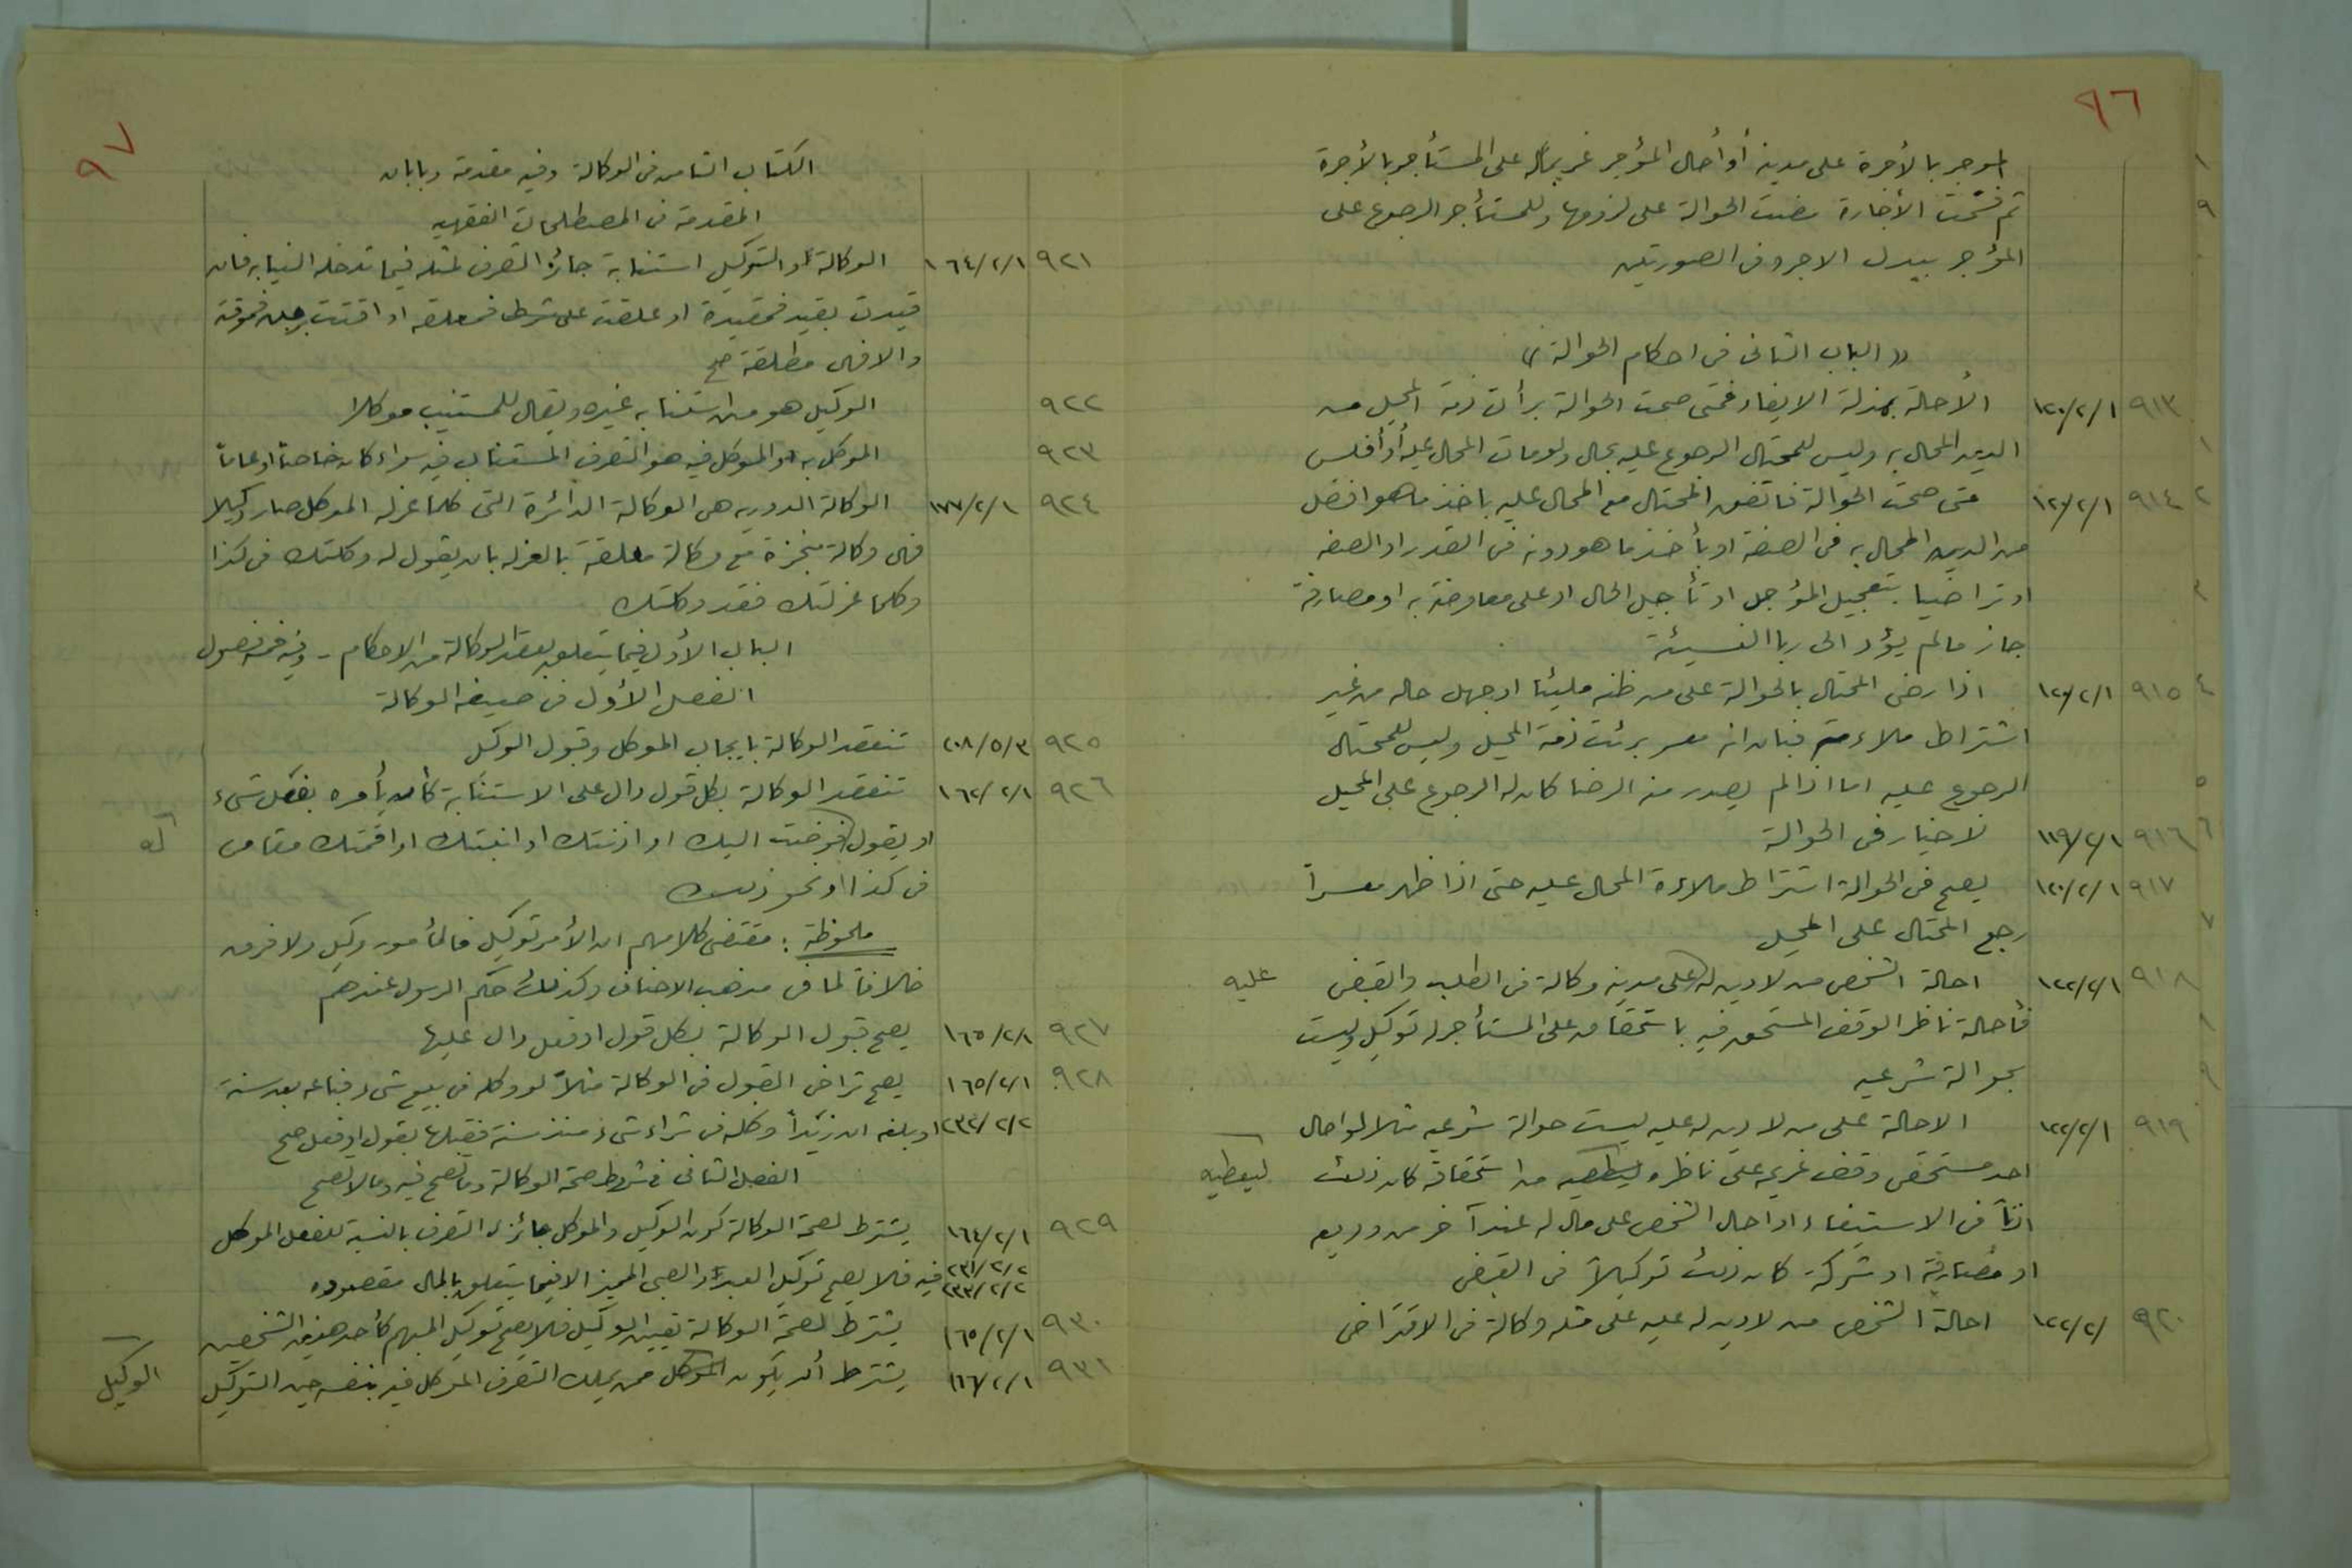 ٩٦
المؤجر بالأجرة على مدينه أو أحال المؤجر غريماً له على المستأجر بالأجرة
ثم فسخت الأجارة مضت الحوالة على لزومها وللمستأجر الرجوع على
المؤجر ببدل الاجر وفي الصورتين
« الباب الثاني في احكام الحوالة »
٩١٣ ١٢٠/٢/١ الأحالة بمنزلة الايفاء فمتى صحت الحوالة برأت ذمة المحيل من
الدين المحال به وليس للمحتال الرجوع عليه بحال ولو مات المحال عليه أو أفلس
٩١٤ ١٢٠/٢/١ متى صحت الحوالة فاتفق المحتال مع المحال عليه بأخذ ما هو افضل
من الدين المحال به في الصفة او بأخذ ما هو دونه في القدر او الصفه
او تراضيا بتعجيل المؤجل او تأجيل الحال او على معاوضة به او مصارفة
جاز ما لم يؤد الى ربا النسيئة
٩١٥ ١٢٠/٢/١ اذا رضي المحتال بالحوالة على من ظنه مليئا او جهل حاله من غير
اشتراط ملاءمته فبان انه معسر برئت ذمة المحيل وليس للمحتال
الرجوع عليه اما اذا لم يصدر منه الرضا كان له الرجوع على المحيل
٩١٦ ١١٩/٢/١ لا خيار في الحوالة
٩١٧ ١٢٠/٢/١ يصح في الحوالة اشتراط ملاءة المحال عليه حتى اذا ظهر معسراً
رجع المحتال على المحيل
٩١٨ ١٢٢/٢/١ احالة الشخص من لا دين له على مدينه وكالة في الطلب والقبض عليه
فأحالة ناظر الوقف المستحق فيه باستحقاقه على المستأجر له توكيل وليست
بحوالة شرعيه
٩١٩ ١٢٢/٢/١ الاحالة على من لا دين له عليه ليست حوالة شرعيه مثلا لو احال
احد مستحقي وقف غريمه على ناظره ليعطيه من استحقاقه كان ذلك ليعطيه
اذناً في الاستيفاء او احال الشخص على مال له عند آخر من وديعه
او مضاربة او شركة كان ذلك توكيلاً في القبض
٩٢٠ ١٢٢/٢/ احالة الشخص من لا دين له عليه على مثله وكالة في الاقتراض
٩٧
الكتاب الثامن في الوكالة وفيه مقدمة وبابان
المقدمة في المصطلحات الفقهيه
٩٢١ ١٦٤/٢/١ الوكالة أو التوكيل استنابة جائز التصرف مثله فيما تدخله النيابه فان
قيدت بقيد فمقيدة او علقت على شرط فمعلقه او اقتت بوقت فموقته
والا فهى مطلقة صح
٩٢٢ الوكيل هو من استنابه غيره ويقال للمستنيب موكلا
٩٢٣ الموكل به او الموكل فيه هو التصرف المستناب فيه سواء كان خاصاً او عاماً
٩٢٤ ١٧٧/٢/١ الوكالة الدوريه هي الوكالة الدائرة التى كلما عزله الموكل صار وكيلا
فهى وكالة منجزة مع وكالة معلقة بالعزل بان يقول له وكلتك في كذا
وكلما عزلتك فقد وكلتك
الباب الأول فيما يتعلق بعقد الوكالة من الاحكام - وفيه خمسة فصول
الفصل الأول في صيغة الوكالة
٩٢٥ ٢٠٨/٥/٣ تنعقد الوكالة بايجاب الموكل وقبول الوكيل
٩٢٦ ١٦٤/٢/١ تنعقد الوكالة بكل قول دال على الاستنابة كأن يأمره بفعل شىء
او يقول فوضت اليك او اذنتك او انبتك او اقمتك مقامى
فى كذا او نحو ذلك
ملحوظة : مقتضى كلامهم ان الأمر توكيل فالمأمور وكيل ولا فرق
خلافاً لما في مذهب الاحناف وكذلك حكم الرسول عندهم
٩٢٧ ١٦٥/٢/١ يصح قبول الوكالة بكل قول او فعل دال عليها
٩٢٨ ١٦٥/٢/١ يصح تراخى القبول في الوكالة مثلاً لو وكله في بيع شىء فباعه بعد سنة
٢٣٢/٢/٢ او بلغه ان زيداً وكله في شراء شىء منذ سنة فقبلها بقول او فعل صح
الفصل الثاني في شروط صحة الوكالة وما تصح فيه وما لا تصح
٩٢٩ ١٦٤/٢/١ يشترط لصحة الوكالة كون الوكيل والموكل جائزي التصرف بالنسبة للفعل الموكل
٢٣١/٢/٢ ٢٣٣/٢/٢ فيه فلا يصح توكيل العبد أو الصبي المميز الا فيما يتعلق بالمال مقصوده
٩٣٠ ١٦٥/٢/١ يشترط لصحة الوكالة تعيين الوكيل فلا يصح توكيل المبهم كأحد هذين الشخصين
٩٣١ ١٦٦/٢/١ يشترط أن يكون الموكل ممن يملك التصرف الموكل فيه بنفسه حين التوكيل الوكيل